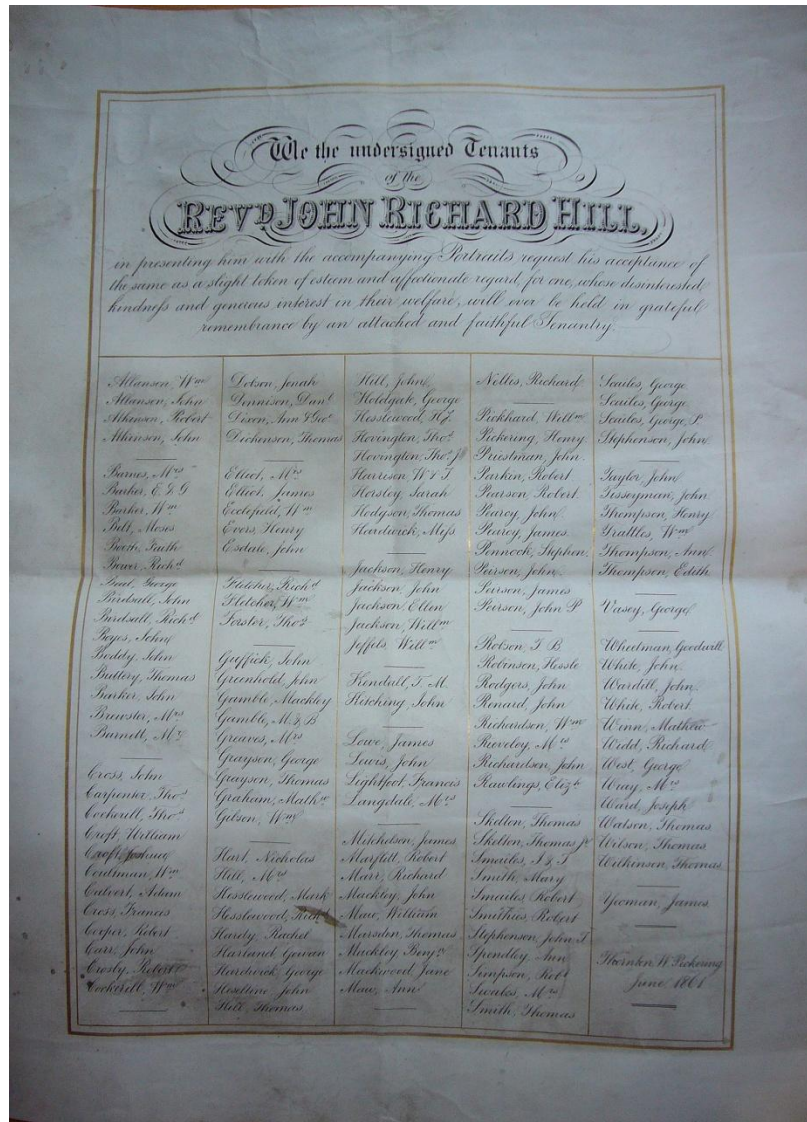 We the undersigned Tenants
of the
REVD. JOHN RICHARD HILL,
in presenting him with the accompanying Portraits request his acceptance of
the same as a slight token of esteem and affectionate regard, for one, whose disinterested
kindness and generous interest in their welfare, will ever be held in grateful
remembrance by an attached and faithful Tenantry.
Allanson, Wm
Allanson, John
Atkinson, Robert
Atkinson, John
Barnes, Mrs
Barker, E. & G
Barker, Wm
Bilt, Moses
Booth, Faith
Bower, Richd
Beal, George
Birdsall, John
Birdsall, Richd
Boyes, John
Boddy, John
Buttery, Thomas
Barker, John
Brewster, Mrs
Burnett, Mrs
Cross, John
Carpenter, Thos
Cockerill, Thos
Croft, William
Croft, Joshua
Cordiman, Wm
Calvert, Adam
Cross, Francis
Cooper, Robert
Carr, John
Crosby, Robert
Cockerill, Wm
Dobson, Jonah
Dennison, Danl
Dixon, Ann & Geo
Dickenson, Thomas
Elliot, Mrs
Elliot, James
Ecclefield, Wm
Evers, Henry
Esdale, John
Fletcher, Richd
Fletcher, Wm
Forster, Thos
Guffick, John
Greenhold, John
Gamble, Mackley
Gamble, M. & B
Greaves, Mrs
Grayson, George
Grayson, Thomas
Graham, Mathw
Gibson, Wm
Hart, Nicholas
Hill, Mrs
Hesslewood, Mark
Hesslewood, Richd
Hardy, Rachel
Harland, Gowan
Hardwick, George
Heseltine, John
Hill, Thomas
Hill, John
Holdgate, George
Hesslewood, H. J.
Hovington, Thos
Hovington, Thos Jr
Harrison, W & T
Horsley, Sarah
Hodgson, Thomas
Hardwick, Miss
Jackson, Henry
Jackson, John
Jackson, Ellen
Jackson, Willm
Jeffels, Willm
Kendall, T. M.
Kitching, John
Lowe, James
Lewis, John
Lightfoot, Francis
Langdale, Mrs
Mitchelson, James
Marflitt, Robert
Marr, Richard
Mackley, John
Maw, William
Marsden, Thomas
Mackley, Benjn
Mackwood, Jane
Maw, Ann
Nellis, Richard
Pickhard, Willm
Pickering, Henry
Priestman, John
Parkin, Robert
Pearson, Robert
Pearcy, John
Pearcy, James
Pennock, Stephen
Peirson, John
Peirson, James
Peirson, John P
Robson, T. B.
Robinson, Hessle
Rodgers, John
Renard, John
Richardson, Wm
Reveley, Mrs
Richardson, John
Rawlings, Elizh
Skelton, Thomas
Skelton, Thomas Jr
Smailes, J & T
Smith, Mary
Smailes, Robert
Smithies, Robert
Stephenson, John T.
Spendley, Ann
Simpson, Robt
Scoales, Mrs
Smith, Thomas
Scailes, George
Scailes, George
Scailes, George, P.
Stephenson, John
Taylor, John
Tisseyman, John
Thompson, Henry
Trattles, Wm
Thompson, Ann
Thompson, Edith
Vasey, George
Wheelman, Goodwill
White, John
Wardill, John
White, Robert
Winn, Mathew
Widd, Richard
West, George
Wray, Mrs
Ward, Joseph
Watson, Thomas
Wilson, Thomas
Wilkinson, Thomas
Yeoman, James
Thornton, Nr. Pickering
June 1861